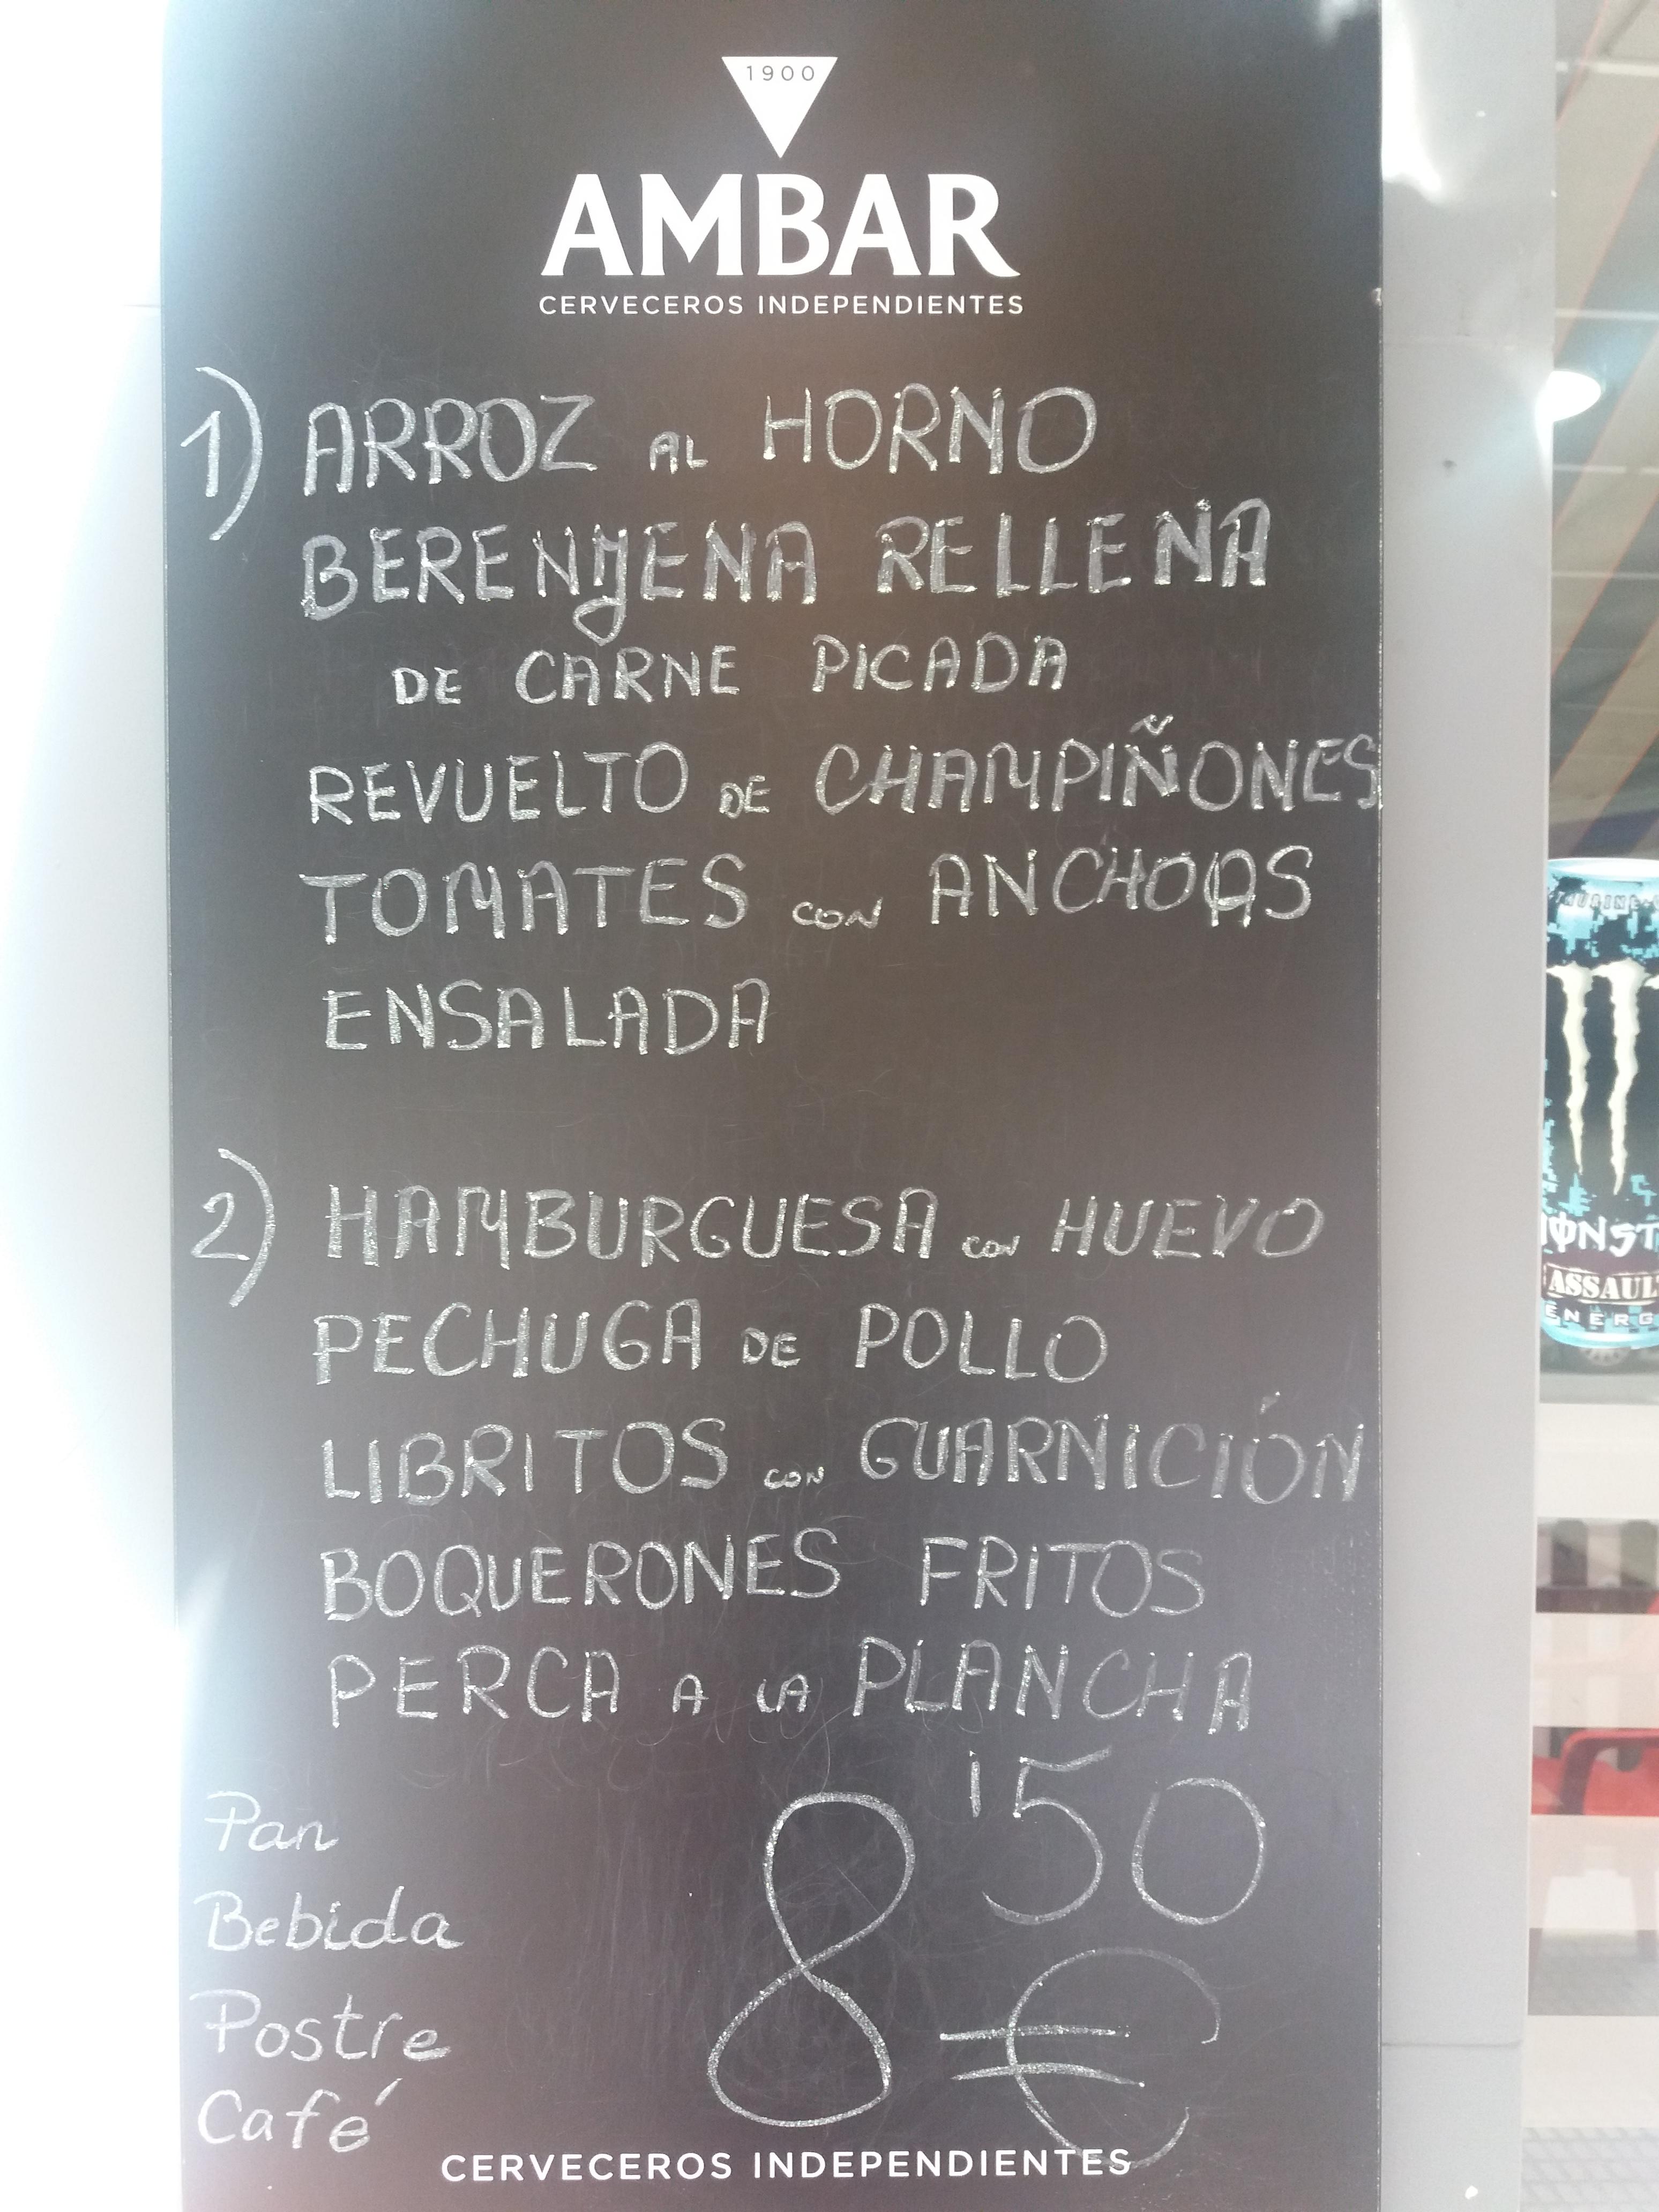 1900
AMBAR
CERVECEROS INDEPENDIENTES
1) ARROZ AL HORNO
BERENJENA RELLENA
DE CARNE PICADA
REVUELTO DE CHAMPIÑONES
TOMATES CON ANCHOAS
ENSALADA
2) HAMBURGUESA CON HUEVO
PECHUGA DE POLLO
LIBRITOS CON GUARNICIÓN
BOQUERONES FRITOS
PERCA A LA PLANCHA
Pan
Bebida
Postre
Café
8'50
€
CERVECEROS INDEPENDIENTES
MONST
ASSAUL
ENERG